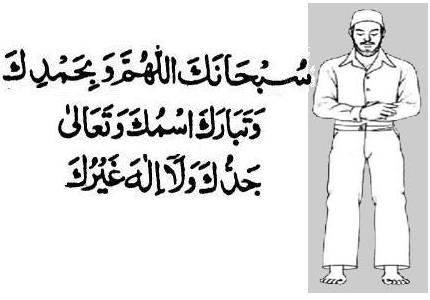 سُبْحَانَكَ اللّٰهُمَّ وَ بِحَمْدِكَ
وَتَبَارَكَ اسْمُكَ وَتَعَالٰی
جَدُّكَ وَلَآ اِلٰهَ غَيْرُكَ